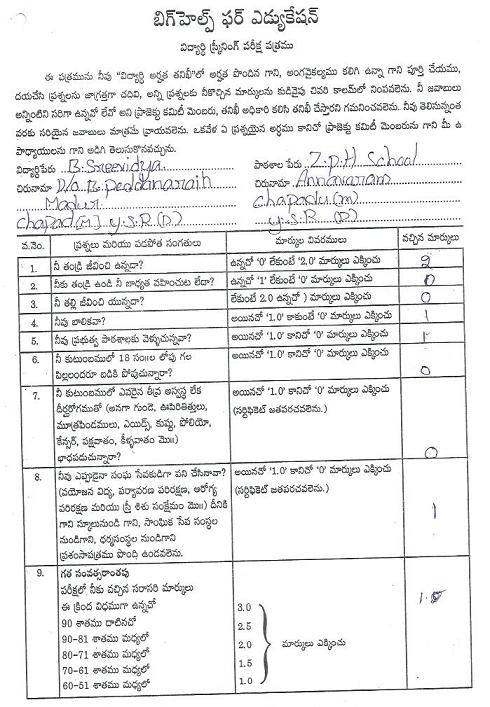 బిగ్‌హెల్ప్ ఫర్ ఎడ్యుకేషన్
విద్యార్థి స్క్రీనింగ్ పరీక్ష పత్రము
ఈ పత్రమును నీవు "విద్యార్థి అర్హత తనిఖీ"లో అర్హత పొందిన గాని, అంగవైకల్యము కలిగి ఉన్నా గాని పూర్తి చేయము,
దయచేసి ప్రశ్నలను జాగ్రత్తగా చదివి, అన్ని ప్రశ్నలకు నీకొచ్చిన మార్కులను కుడివైపు చివరి కాలమ్‌లో నింపవలెను. నీ జవాబులు
అన్నింటిని సరిగా ఉన్నవో లేవో అని ప్రాజెక్టు కమిటీ మెంబరు, తనిఖీ అధికారి కలిసి తనిఖీ చేస్తారని గమనించవలెను. నీవు తెలిసున్నంత
వరకు సరియైన జవాబులు మాత్రమే వ్రాయవలెను. ఒకవేళ ఏ ప్రశ్నయైన అర్థము కానిచో ప్రాజెక్టు కమిటీ మెంబరును గాని మీ ఉ
పాధ్యాయులను గాని అడిగి తెలుసుకొనవచ్చును.
విద్యార్థిపేరు B. Sreevidya పాఠశాల పేరు Z.P.H School
చిరునామా D/o B. Peddanaraih చిరునామా Annavaram
Madur Chapadu (m)
Chapad (M) Y.S.R (D) Y.S.R (D)
వ.నెం. ప్రశ్నలు మరియు పడపోత సంగతులు మార్కుల వివరములు వచ్చిన మార్కులు
1. నీ తండ్రి జీవించి ఉన్నాడా? ఉన్నచో '0' లేకుంటే '2.0' మార్కులు ఎక్కించు 2
2. నీకు తండ్రి ఉండి నీ బాధ్యత వహించుట లేదా? ఉన్నచో '1' లేకుంటే '0' మార్కులు ఎక్కించు 0
3. నీ తల్లి జీవించి యున్నదా? లేకుంటే 2.0 ఉన్నచో ) మార్కులు ఎక్కించు 0
4. నీవు బాలికవా? అయినచో '1.0' కాకుంటే '0' మార్కులు ఎక్కించు 1
5. నీవు ప్రభుత్వ పాఠశాలకు వెళ్ళుచున్నవా? అయినచో '1.0' కానిచో '0' మార్కులు ఎక్కించు 1
6. నీ కుటుంబములో 18 సం॥ల లోపు గల అయినచో '1.0' కానిచో '0' మార్కులు ఎక్కించు
పిల్లలందరూ బడికి పోవుచున్నారా? 0
7. నీ కుటుంబములో ఎవరైన తీవ్ర అస్వస్థ లేక అయినచో '1.0' కానిచో '0' మార్కులు ఎక్కించు
దీర్ఘరోగముతో (అనగా గుండె, ఊపిరితిత్తులు, (సర్టిఫికెట్ జతపరచవలెను.)
మూత్రపిండములు, ఎయిడ్స్, కుష్ఠు, పోలియో,
కేన్సర్, పక్షవాతం, కీళ్ళవాతం మొ॥)
భాధపడుచున్నారా? 0
8. నీవు ఎప్పుడైనా సంఘ సేవకుడిగా పని చేసినావా? అయినచో '1.0' కానిచో '0' మార్కులు ఎక్కించు
(వయోజన విద్య, పర్యావరణ పరిరక్షణ, ఆరోగ్య (సర్టిఫికెట్ జతపరచవలెను.)
పరిరక్షణ మరియు స్త్రీ శిశు సంక్షేమం మొ॥) దీనికి
గాని స్కూలునుండి గాని, సాంఘిక సేవ సంస్థల 1
నుండిగాని, ధర్మసంస్థల నుండిగాని
ప్రశంసాపత్రము పొంది ఉండవలెను.
9. గత సంవత్సరాంతపు
పరీక్షలో నీకు వచ్చిన సరాసరి మార్కులు
ఈ క్రింద విధముగా ఉన్నచో 3.0
90 శాతము దాటినచో 2.5
90-81 శాతము మధ్యలో 2.0 మార్కులు ఎక్కించు
80-71 శాతము మధ్యలో 1.5
70-61 శాతము మధ్యలో 1.0
60-51 శాతము మధ్యలో